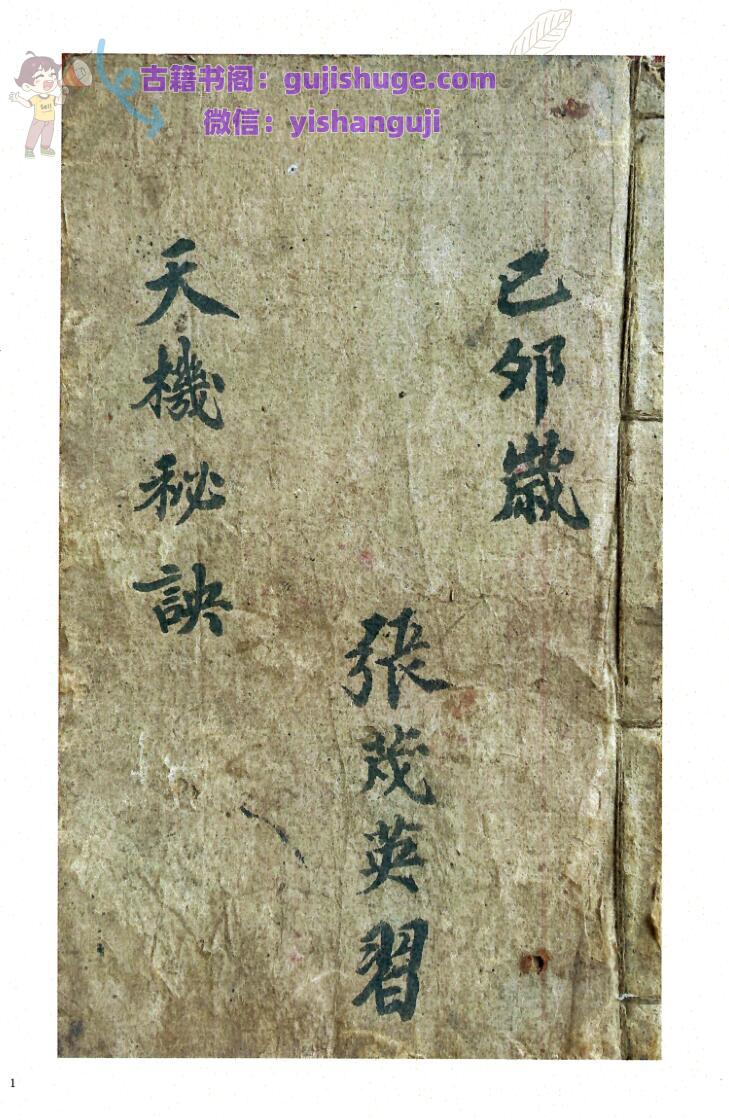 古籍书阁：gujishuge.com
微信：yishanguji
Sell
己夘歲
張茂英習
天機秘訣
1